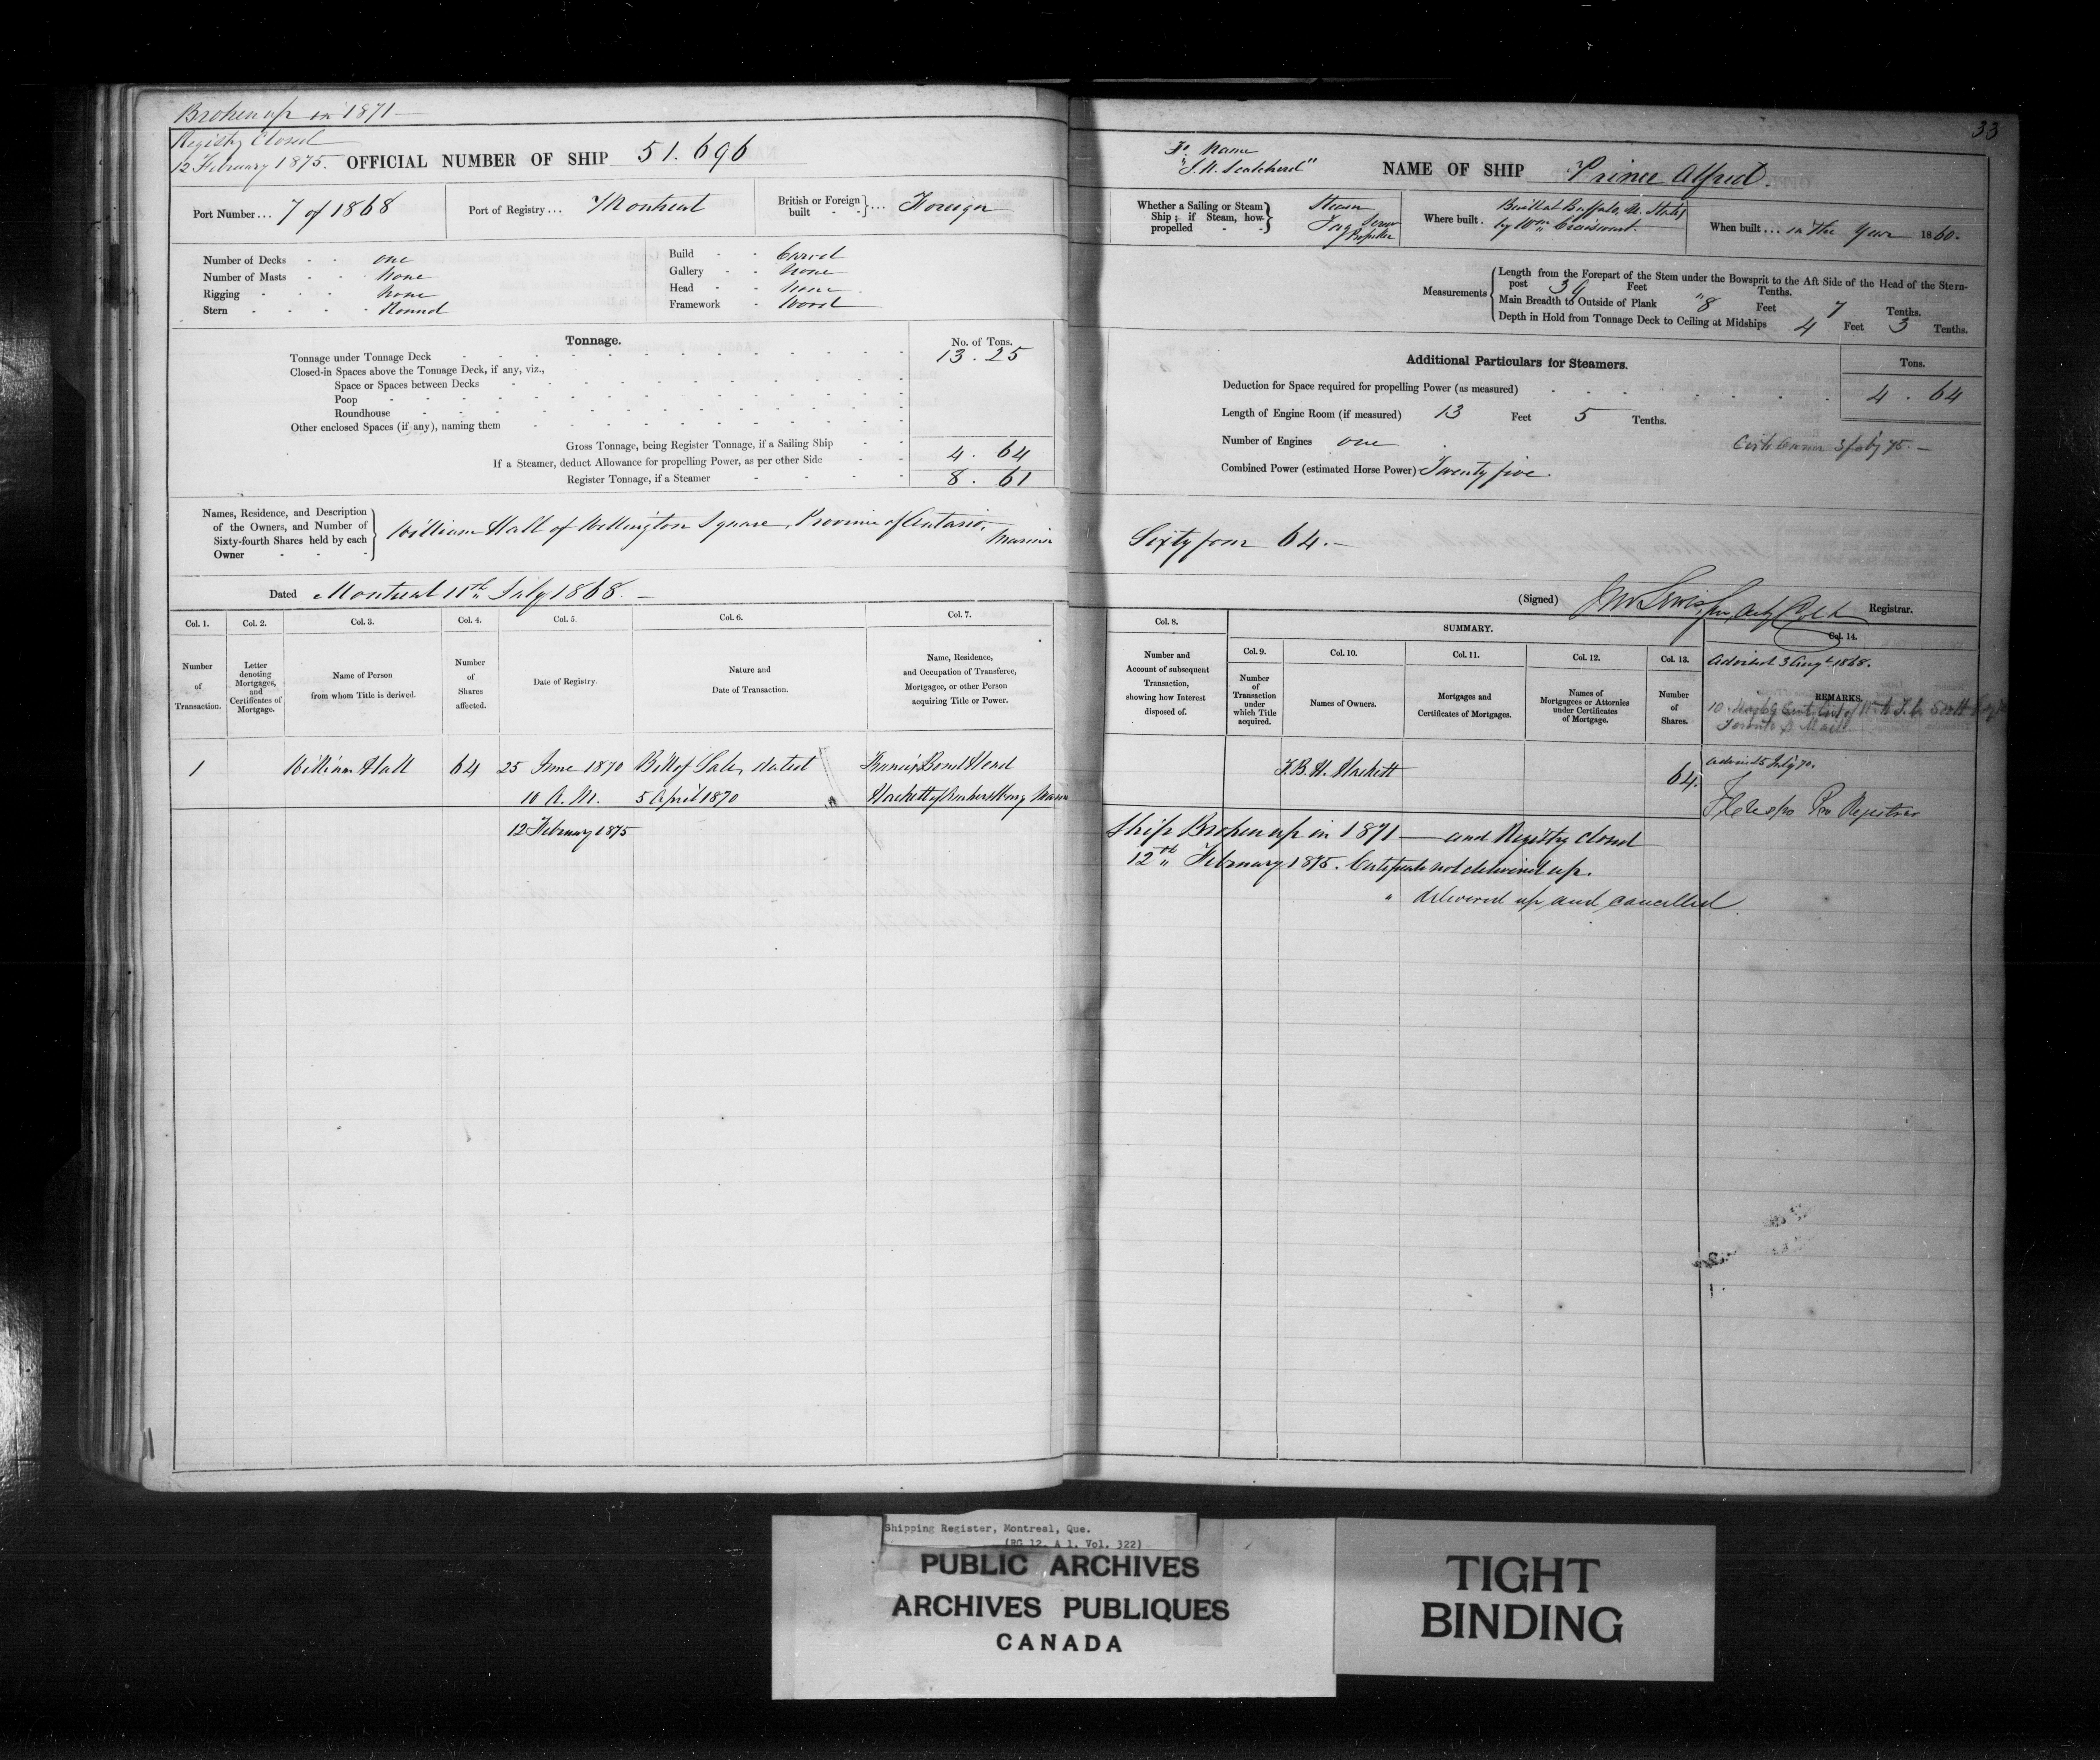 Broken up in 1871
Registry Closed
12 February 1875.
OFFICIAL NUMBER OF SHIP 51.696
Port Number... 7 of 1868
Port of Registry... Montreal
British or Foreign built } ... Foreign
Number of Decks - - one
Number of Masts - - None
Rigging - - - None
Stern - - - - Round
Build - - Carvel
Gallery - - None
Head - - None
Framework - Wood
Tonnage.
No. of Tons.
Tonnage under Tonnage Deck 13.25
Closed-in Spaces above the Tonnage Deck, if any, viz.,
Space or Spaces between Decks
Poop
Roundhouse
Other enclosed Spaces (if any), naming them
Gross Tonnage, being Register Tonnage, if a Sailing Ship
If a Steamer, deduct Allowance for propelling Power, as per other Side 4.64
Register Tonnage, if a Steamer 8.61
Names, Residence, and Description
of the Owners, and Number of
Sixty-fourth Shares held by each
Owner
William Hall of Wellington Square, Province of Ontario,
Mariner
Dated Montreal 11th July 1868.
Col. 1. Col. 2. Col. 3. Col. 4. Col. 5. Col. 6. Col. 7.
Number of Transaction.
Letter denoting Mortgages, and Certificates of Mortgage.
Name of Person from whom Title is derived.
Number of Shares affected.
Date of Registry.
Nature and Date of Transaction.
Name, Residence, and Occupation of Transferee, Mortgagee, or other Person acquiring Title or Power.
1 William Hall 64 25 June 1870 Bill of Sale, dated Francis Bond Head
10 A.M. 5 April 1870 Hackett of Amherstburg Mariner
12 February 1875
33
Name
NAME OF SHIP Prince Alfred.
Whether a Sailing or Steam Ship; if Steam, how propelled } Steam
Tug Screw
Propeller
Where built. Built at Buffalo, U. States
by Wm
When built... in the year 1860.
Measurements
Length from the Forepart of the Stem under the Bowsprit to the Aft Side of the Head of the Stern-
post 34 Feet Tenths.
Main Breadth to Outside of Plank 8 Feet 7 Tenths.
Depth in Hold from Tonnage Deck to Ceiling at Midships 4 Feet 3 Tenths.
Additional Particulars for Steamers.
Tons.
Deduction for Space required for propelling Power (as measured) 4.64
Length of Engine Room (if measured) 13 Feet 5 Tenths.
Number of Engines one
Combined Power (estimated Horse Power) Twenty five.
Sixty four 64.
(Signed) Registrar.
Col. 8.
SUMMARY.
Col. 9. Col. 10. Col. 11. Col. 12. Col. 13. Col. 14.
Number and Account of subsequent Transaction, showing how Interest disposed of.
Number of Transaction under which Title acquired.
Names of Owners.
Mortgages and Certificates of Mortgages.
Names of Mortgagees or Attornies under Certificates of Mortgage.
Number of Shares.
Advised 3 Augt 1868.
REMARKS.
F.B.H. Hackett 64.
Registrar
Ship Broken up in 1871 — and Registry closed
12th February 1875. Certificate not delivered up.
" delivered up and cancelled
Shipping Register, Montreal, Que.
(RG 12, A 1, Vol. 322)
PUBLIC ARCHIVES
ARCHIVES PUBLIQUES
CANADA
TIGHT
BINDING